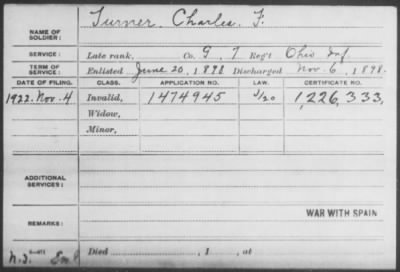 NAME OF SOLDIER: Turner, Charles, F.
SERVICE: Late rank, Co. G, 7 Reg't Ohio Inf
TERM OF SERVICE: Enlisted June 20, 1898 Discharged Nov. 6, 1898.
DATE OF FILING. CLASS. APPLICATION NO. LAW. CERTIFICATE NO.
1922. Nov. 4 Invalid, 1474945 J/20 1,226,333,
Widow,
Minor,
ADDITIONAL SERVICES:
WAR WITH SPAIN
REMARKS:
Died , 1 , at